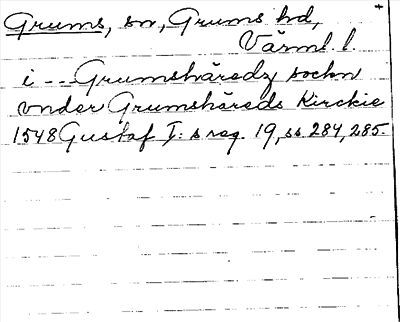 Grums, sn, Grums hd,
Värml. l.
i -- Grumshäredz sockn
vnder Grumshäreds Kirckie
1548 Gustaf I:s reg. 19, ss. 284, 285.